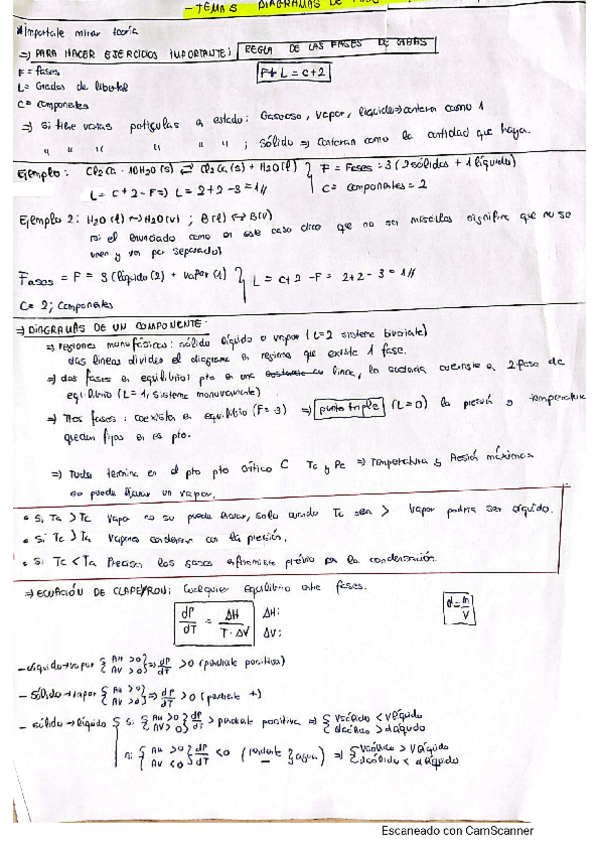 - TEMA 5 DIAGRAMAS DE
* Importante mirar teoría
=> PARA HACER EJERCICIOS IMPORTANTE; REGLA DE LAS FASES DE GIBBS
F = fases
F + L = C + 2
L = Grados de libertad
C = componentes
=> si tiene varias en estado: Gaseoso, vapor, líquido => contara como 1
" " " " " ; sólido => contaran como la cantidad que haya.
Ejemplo: Cl2Ca · 10H2O (s) ⇄ Cl2Ca (s) + H2O (l) } F = Fases = 3 (2 sólidos + 1 líquido)
L = C + 2 - F => L = 2 + 2 - 3 = 1 // C = componentes = 2
Ejemplo 2: H2O (l) <-> H2O (v) ; B (l) <-> B (v)
si el enunciado como en este caso dice que no son miscibles significa que no se
unen y van por separado)
Fases = F = 3 (líquido (2) + vapor (1) } L = C + 2 - F = 2 + 2 - 3 = 1 //
C = 2; componentes
=> DIAGRAMAS DE UN COMPONENTE.
=> regiones monofásicas: sólido líquido o vapor (L = 2 sistema bivariante)
las líneas dividen el diagrama en regiones que existe 1 fase.
=> dos fases en equilibrio: pto en una línea, la sustancia coexiste en 2 fase de
equilibrio (L = 1, sistema monovariante)
=> Tres fases: coexisten en equilibrio (F = 3) => punto triple (L = 0) la presión y temperatura
quedan fijas en es pto.
=> Todo termina en el pto pto crítico C Tc y Pc => Temperatura y Presión máximas
no puede un vapor.
• Si Ta > Tc Vapor no se puede licuar, solo cuando Tc sea > vapor podria ser líquido.
• Si Tc > Ta Vapores condensar con la presión.
• Si Tc < Ta los gases previo por la condensación.
=> ECUACIÓN DE CLAPEYRON; Cualquier equilibrio entre fases.
dP/dT = ΔH / T · ΔV ΔH: ΔV:
d = m/V
- líquido -> vapor { ΔH > 0 ΔV > 0 } => dP/dT > 0 (pendiente positiva)
- Sólido -> vapor { ΔH > 0 ΔV > 0 } => dP/dT > 0 (pendiente +)
- sólido -> líquido { Si { ΔH > 0 ΔV > 0 } dP/dT > pendiente positiva => { Vsólido < Vlíquido dsólido > dlíquido
Si { ΔH > 0 ΔV < 0 } dP/dT < 0 (pendiente - } agua) => { Vsólido > Vlíquido dsólido < dlíquido
Escaneado con CamScanner